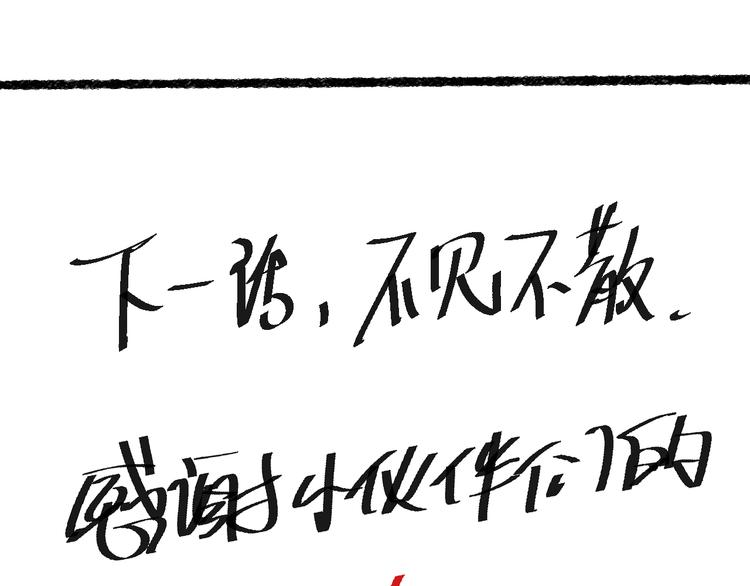 下一话，不见不散.
感谢小伙伴们的